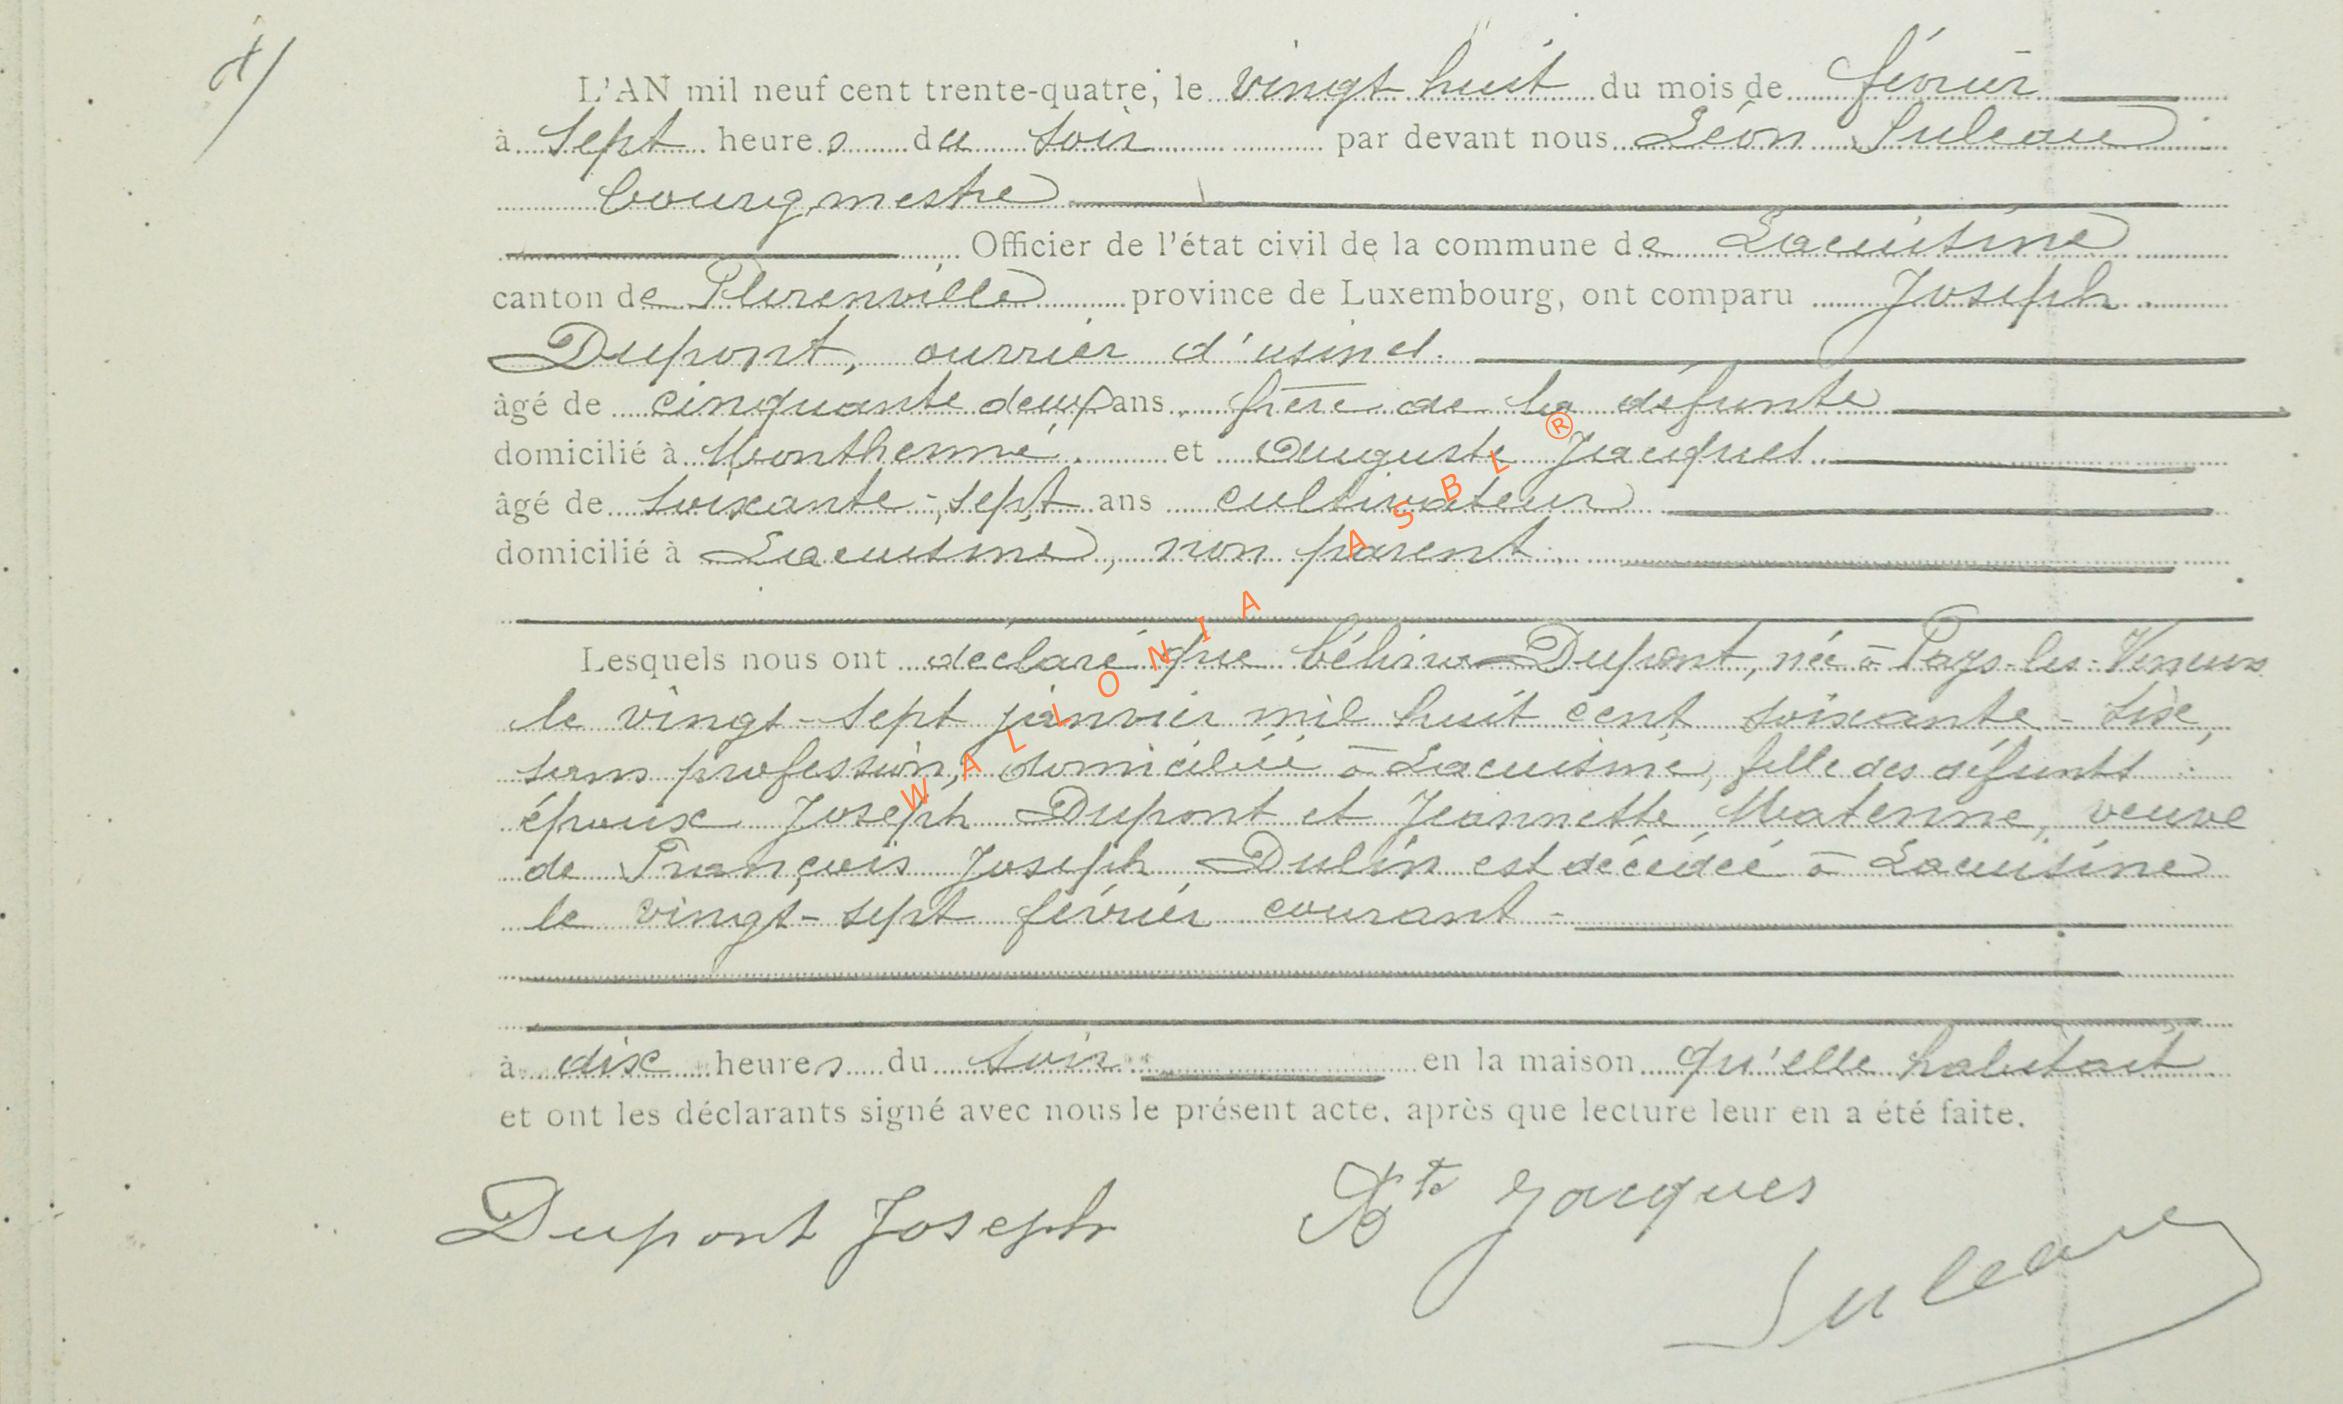 L'AN mil neuf cent trente-quatre, le vingt huit du mois de février
à sept heures du soir par devant nous Léon Suleau
bourgmestre
Officier de l'état civil de la commune de Lacuisine
canton de Florenville province de Luxembourg, ont comparu Joseph
Dupont, ouvrier d'usine
âgé de cinquante deux ans frère de la défunte
domicilié à Monthermé et Auguste Jacques
âgé de soixante-sept ans cultivateur
domicilié à Lacuisine, non parent
Lesquels nous ont déclaré que Célina Dupont, née à les-Veneurs
le vingt-sept janvier mil huit cent soixante-six,
sans profession, domiciliée à Lacuisine, fille des défunts
époux Joseph Dupont et Jeannette Watenne, veuve
de François Joseph Dulin est décédée à Lacuisine
le vingt-sept février courant
à dix heures du soir en la maison qu'elle habitait
et ont les déclarants signé avec nous le présent acte, après que lecture leur en a été faite.
Dupont Joseph
Ate Jacques
Suleau
WALLONIA ASBL ®